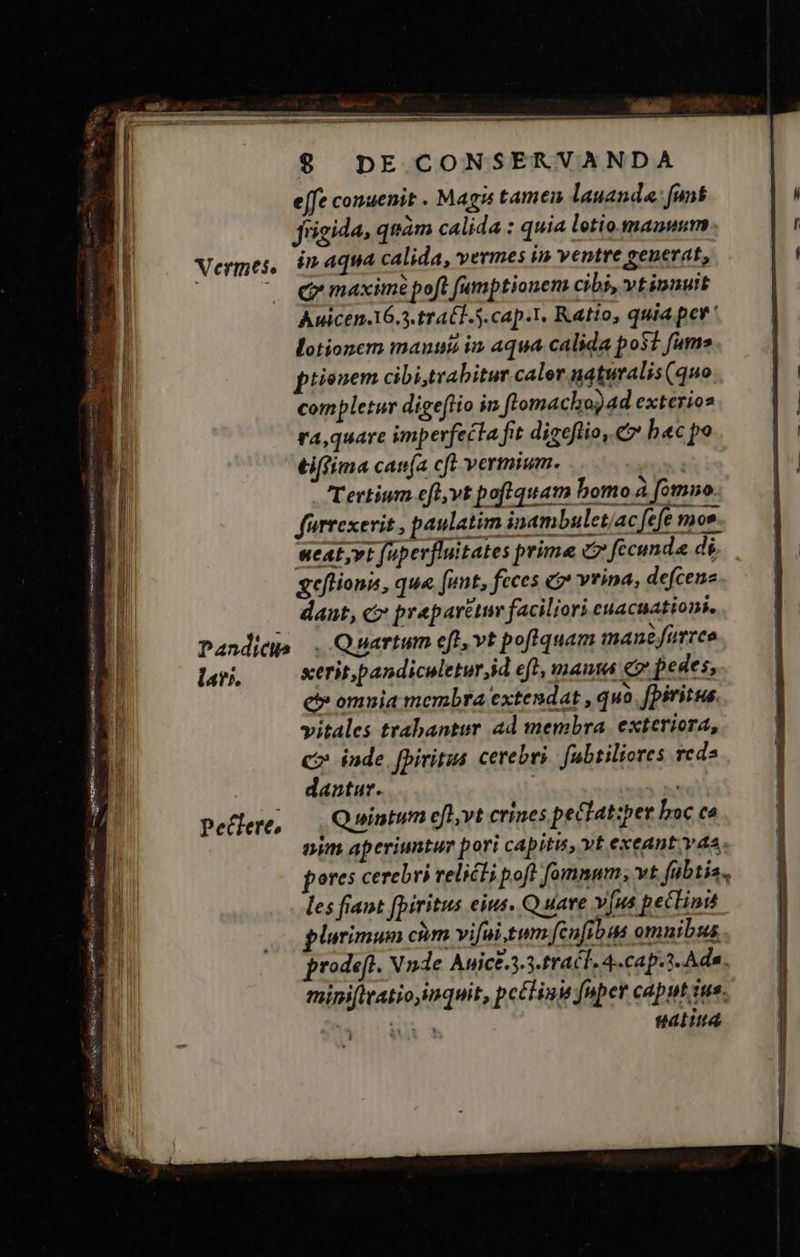 8 DE CONSERVANDA
esse conuenit. Magis tamen lauandæ sunt
frigida, quàm calida: quia lotio manuum
Vermes. in aqua calida, vermes in ventre generat,
& maximè post sumptionem cibi, vt innuit
Auicen.16.3.tract.5.cap.1. Ratio, quia per
lotionem manuũ in aqua calida post sum-
ptionem cibi, trahitur calor naturalis (quo
completur digestio in stomacho) ad exterio-
ra, quare imperfecta fit digestio, & hæc po
tissima causa est vermium.
Tertium est, vt postquam homo à somno
surrexerit, paulatim inambulet, ac sese mo-
ueat, vt superfluitates primæ & secundæ di-
gestionis, quæ sunt, feces & vrina, descen-
dant, & præparẽtur faciliori euacuationi.
Pandicu- Quartum est, vt postquam manè surre-
lari. xerit, pandiculetur, id est, manus & pedes,
& omnia membra extendat, quò spiritus
vitales trahantur ad membra exteriora,
& inde spiritus cerebri subtiliores red-
dantur.
Pectere. Quintum est, vt crines pectat: per hoc e-
nim aperiuntur pori capitis, vt exeant va-
pores cerebri relicti post somnum, vt subtia-
les fiant spiritus eius. Quare vsus pectinis
plurimum cùm visui, tum sensibus omnibus
prodest. Vnde Auice.3.3.tract.4.cap.3. Ad-
ministratio, inquit, pectinis super caput iu-
uatiua